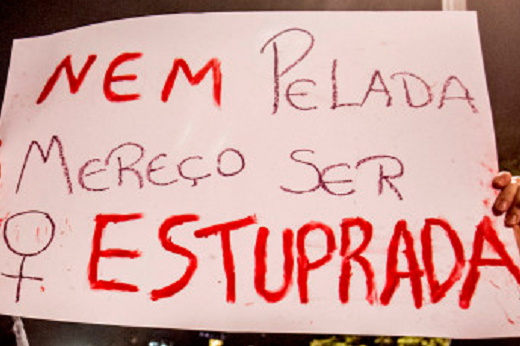 NEM PELADA
MEREÇO SER
♀ ESTUPRADA